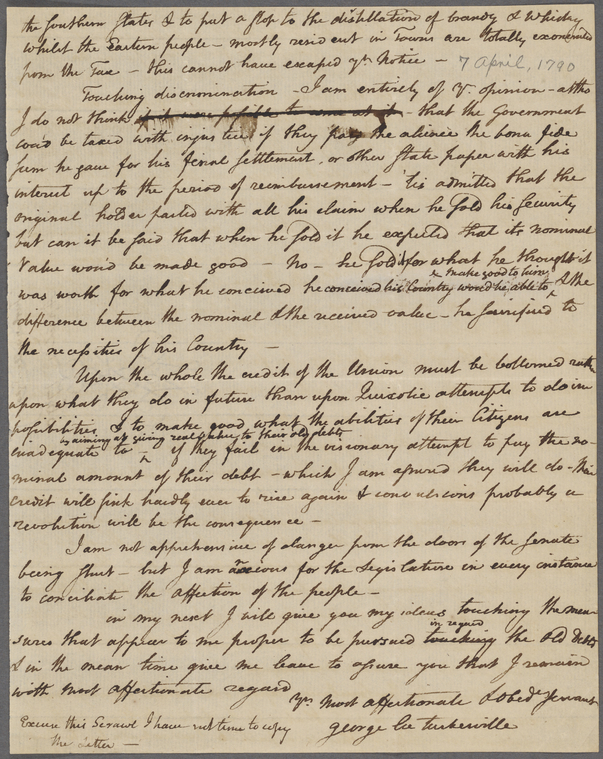 the Southern States & to put a stop to the distillation of brandy & whisky
whilst the Eastern people – mostly resident in Towns are totally exonerated
from the Tax – this cannot have escaped yr. Notice – 7 April, 1790
Touching discrimination – I am entirely of yr. opinion – altho
I do not think – that the Government
wou'd be taxed with injustice if they pay the alienee the bona fide
sum he gave for his final settlement, or other State paper with his
interest up to the period of reimbursement – 'tis admitted that the
original holder parted with all his claim when he sold his security
but can it be said that when he sold it he expected that its nominal
Value wou'd be made good – No – he sold it for what he thought it
was worth for what he conceived his Country wou'd be able to make good to him & the
difference between the nominal & the received value – he sacrificed to
the necessities of his Country –
Upon the whole the credit of the Union must be bottomed rather
upon what they do in future than upon Quixotic attempts to do im
possibilities & to make good what the abilities of their Citizens are
inadequate to – if they fail in the visionary attempt to pay the no-
in aiming at giving real value to their old debts
minal amount of their debt – which I am assured they will do – their
credit will sink hardly ever to rise again & convulsions probably a
revolution will be the consequence –
I am not apprehensive of danger from the doors of the Senate
being shut – but I am anxious for the Legislature in every instance
to conciliate the affection of the people –
in my next I will give you my ideas touching the mea-
sures that appear to me proper to be pursued in regard the old debts
& in the mean time give me leave to assure you that I remain
with most affectionate regard
Yr. most affectionate & Obedt. Servant
George Lee Turberville
Excuse this Scrawl I have not time to copy
the Letter –